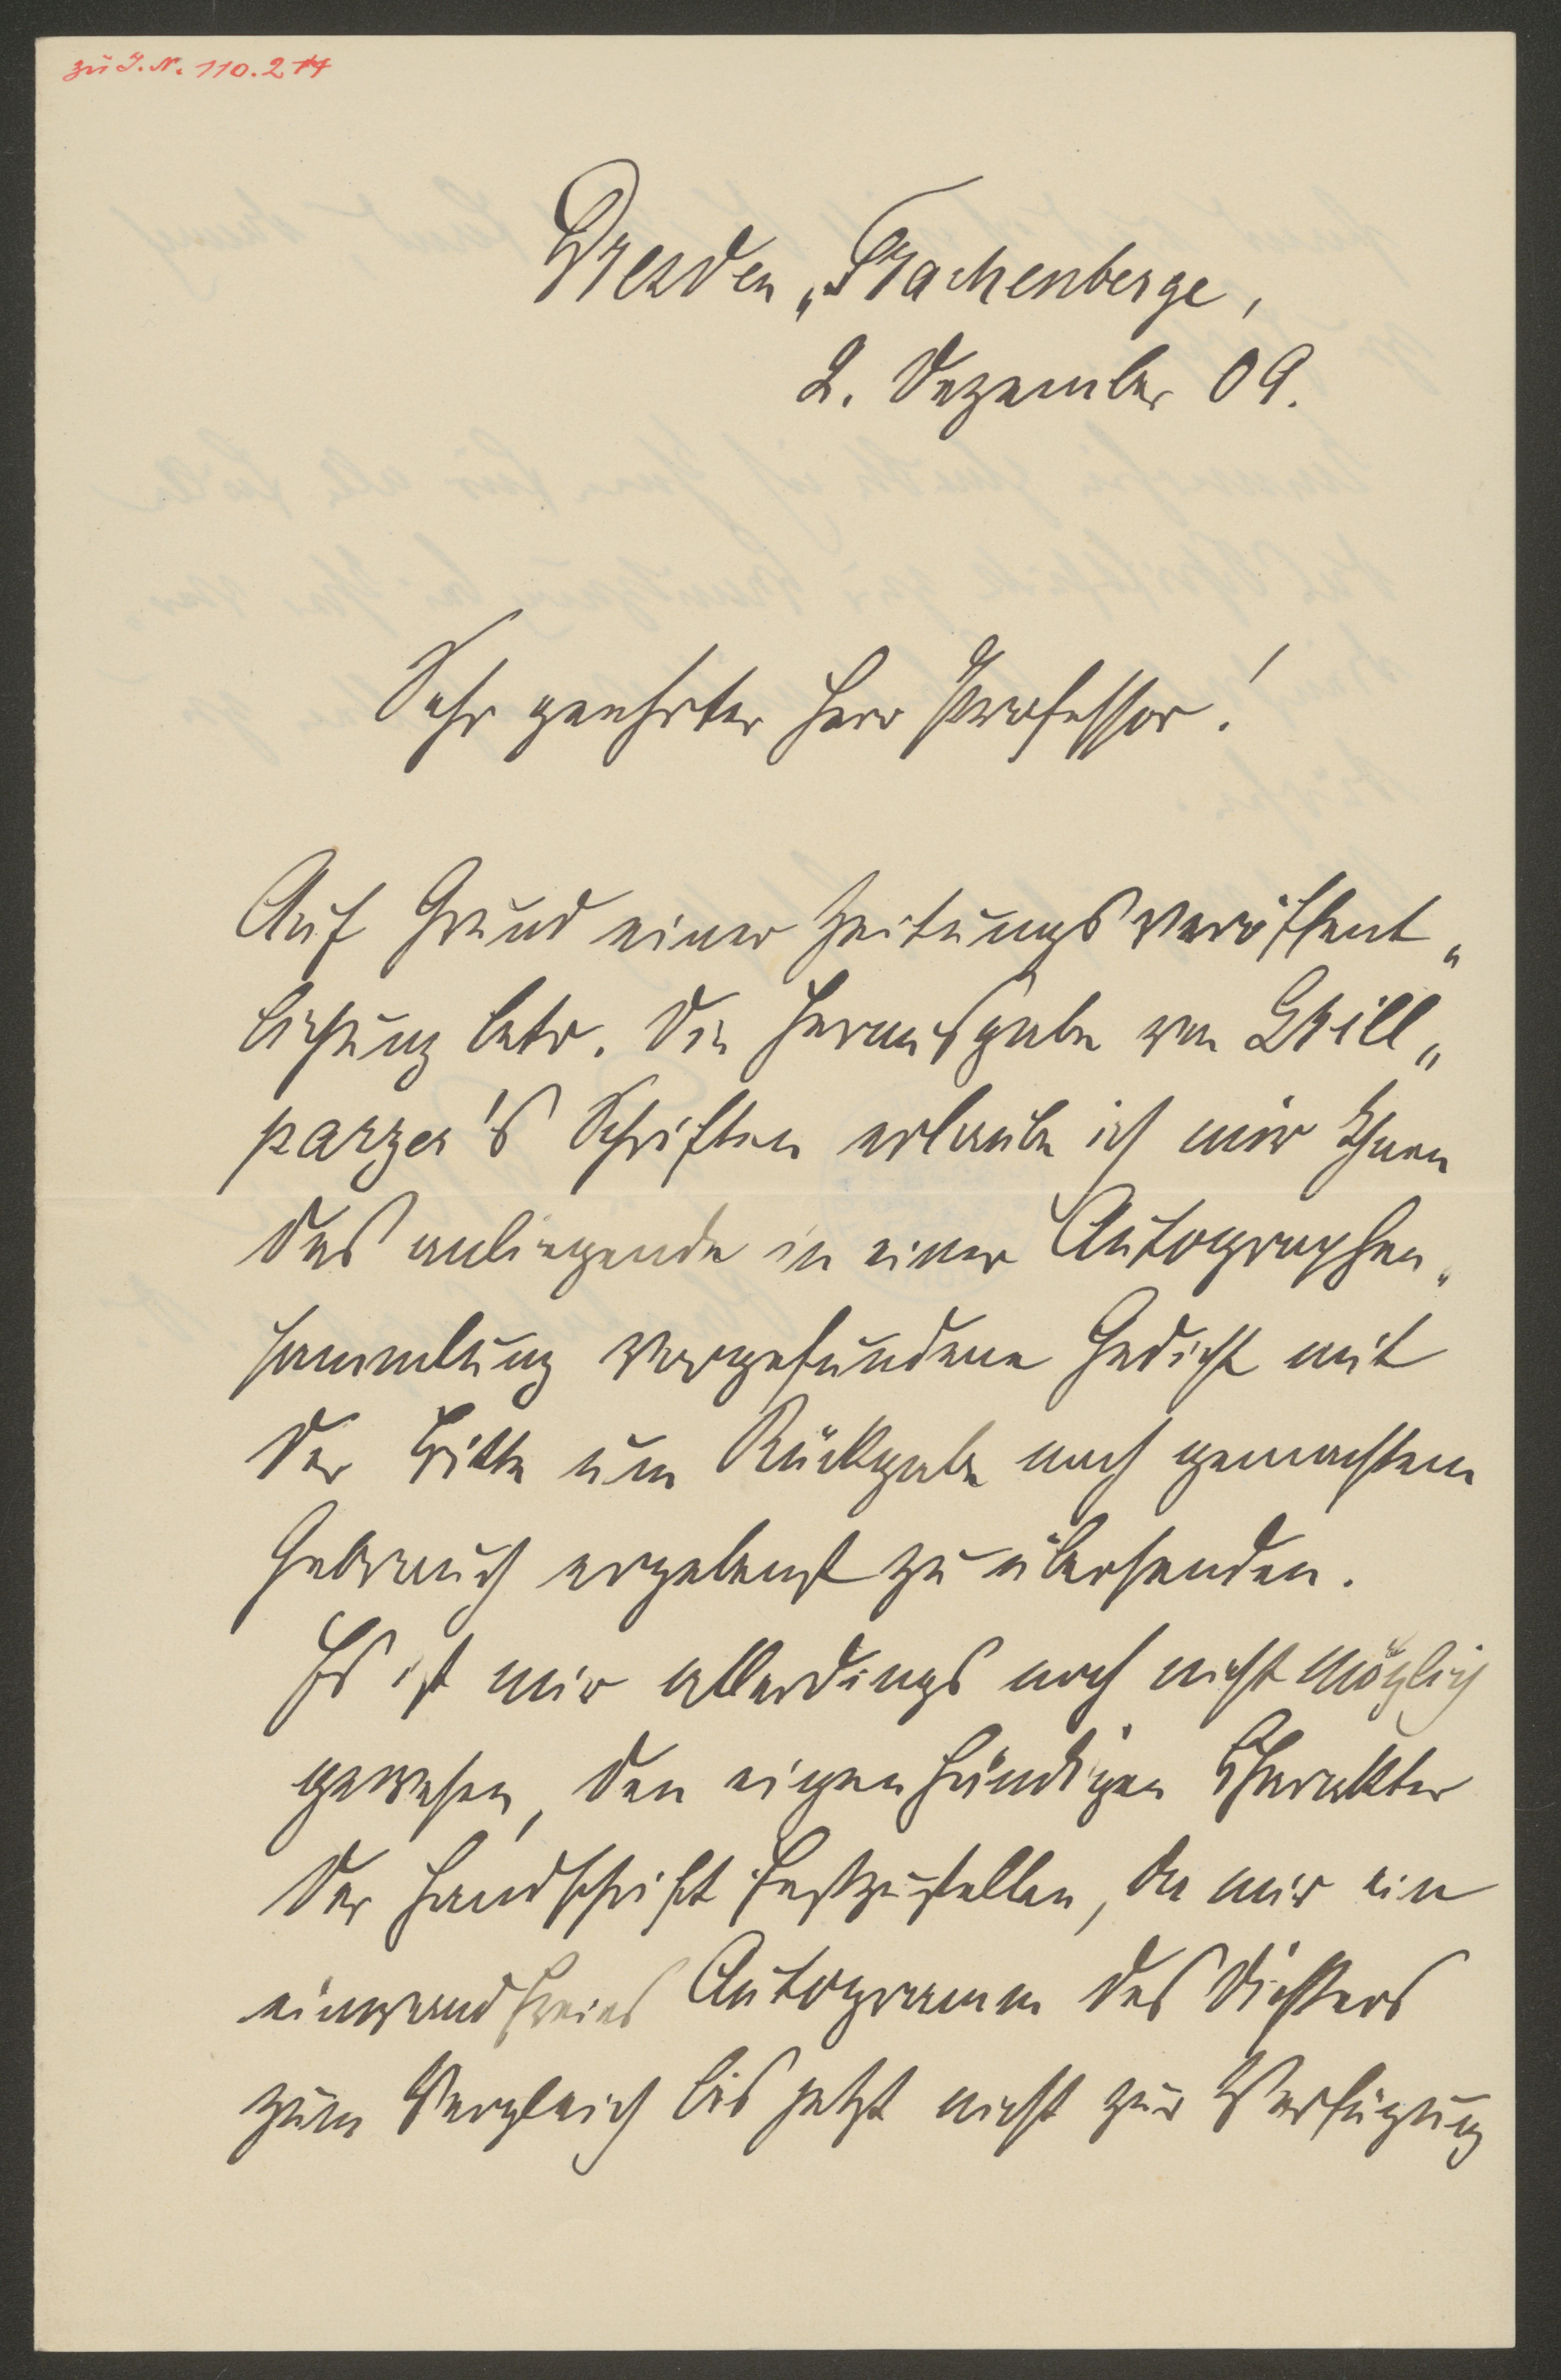 zu I.N. 110.214
Dresden „Trachenberge,
2. Dezember 09.
Sehr geehrter Herr Professor!
Auf Grund einer Zeitungsveröffent„
lichung betr. die Herausgabe von Grill„
parzer's Schriften erlaube ich mir Ihnen
das anliegende in einer Autographen„
sammlung vorgefundene Gedicht mit
der Bitte um Rückgabe nach gemachtem
Gebrauch ergebenst zu übersenden.
Es ist mir allerdings noch nicht möglich
gewesen, den eigenhändigen Charakter
der Handschrift festzustellen, da mir ein
einwandfreies Autogramm des Dichters
zum Vergleich bis jetzt nicht zur Verfügung